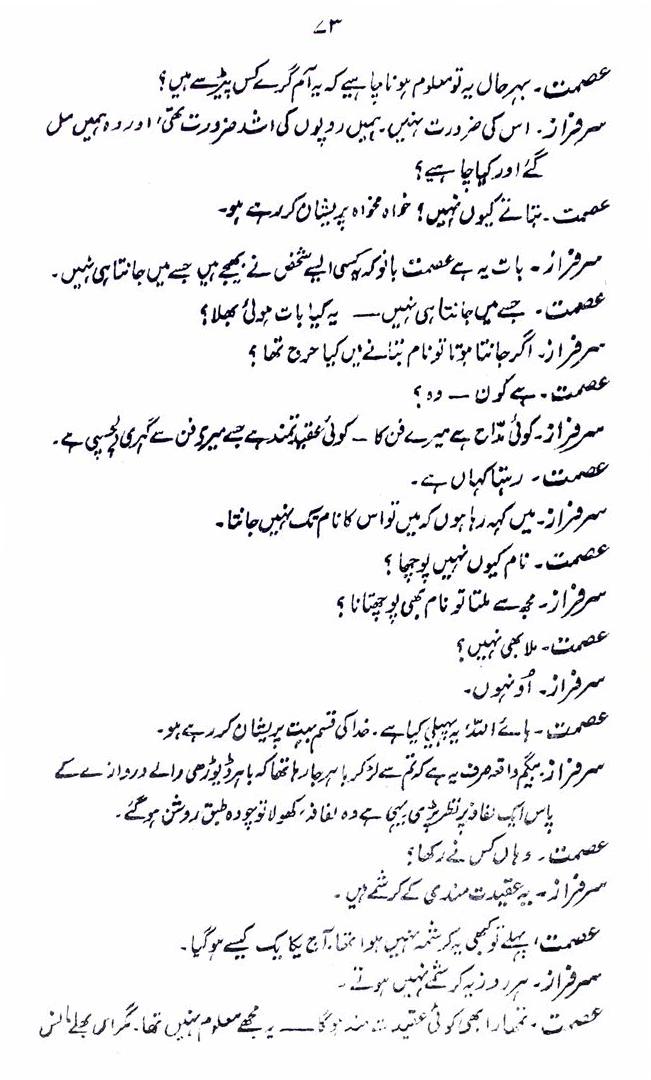 ۷۳
عصمت۔ بہرحال یہ تو معلوم ہونا چاہیے کہ یہ آم گرے کس پیڑ سے ہیں؟
سرفراز۔ اس کی ضرورت نہیں۔ ہمیں روپوں کی اشد ضرورت تھی، اور وہ ہمیں مل
گئے اور کیا چاہیے؟
عصمت۔ بتاتے کیوں نہیں؟ خواہ مخواہ پریشان کر رہے ہو۔
سرفراز۔ بات یہ ہے عصمت بانو کہ کسی ایسے شخص نے بھیجے ہیں جسے میں جانتا ہی نہیں۔
عصمت۔ جسے میں جانتا ہی نہیں — یہ کیا بات ہوئی بھلا؟
سرفراز۔ اگر جانتا ہوتا تو نام بتانے میں کیا حرج تھا؟
عصمت۔ ہے کون — وہ؟
سرفراز۔ کوئی مدّاح ہے میرے فن کا — کوئی عقیدتمند ہے جسے میری فن سے گہری دلچسپی ہے۔
عصمت۔ رہتا کہاں ہے۔
سرفراز۔ میں کہہ رہا ہوں کہ میں تو اس کا نام تک نہیں جانتا۔
عصمت۔ نام کیوں نہیں پوچھا؟
سرفراز۔ مجھ سے ملتا تو نام بھی پوچھتا نا؟
عصمت۔ ملا بھی نہیں؟
سرفراز۔ اُونہوں۔
عصمت۔ ہائے اللہ یہ پہیلی کیا ہے۔ خدا کی قسم بہت پریشان کر رہے ہو۔
سرفراز۔ بیگم واقعہ صرف یہ ہے کہ تم سے لڑ کر باہر جا رہا تھا کہ باہر ڈیوڑھی والے دروازے کے
پاس ایک لفافہ پر نظر پڑی یہی ہے وہ لفافہ، کھولا تو چودہ طبق روشن ہو گئے۔
عصمت۔ وہاں کس نے رکھا؟
سرفراز۔ یہ عقیدت مندی کے کرشمے ہیں۔
عصمت، پہلے تو کبھی یہ کرشمہ نہیں ہوا تھا، آج یکایک کیسے ہو گیا۔
سرفراز۔ ہر روز یہ کرشمے نہیں ہوتے۔
عصمت۔ تمہارا بھی کوئی عقیدت مند ہوگا — یہ مجھے معلوم نہیں تھا۔ مگر اس بھلے مانس